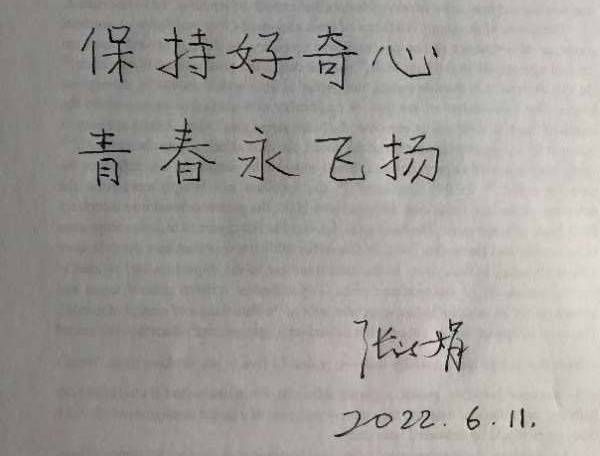 保持好奇心
青春永飞扬
2022.6.11.